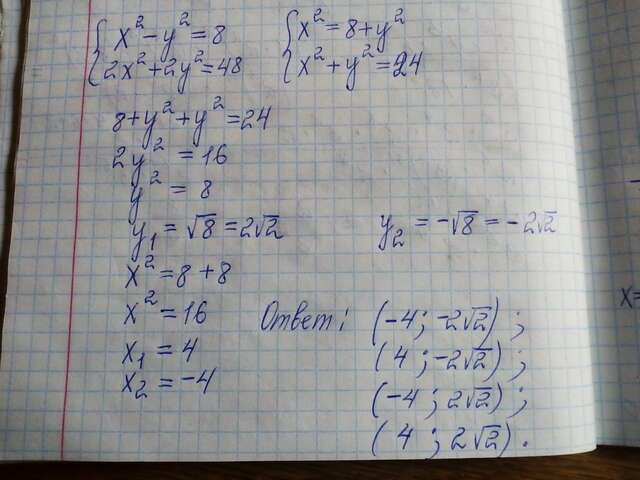 x² - y² = 8
2x² + 2y² = 48
x² = 8 + y²
x² + y² = 24
8 + y² + y² = 24
2y² = 16
y² = 8
y₁ = √8 = 2√2
y₂ = -√8 = -2√2
x² = 8 + 8
x² = 16
x₁ = 4
x₂ = -4
Ответ: (-4; -2√2);
(4; -2√2);
(-4; 2√2);
(4; 2√2).
x=